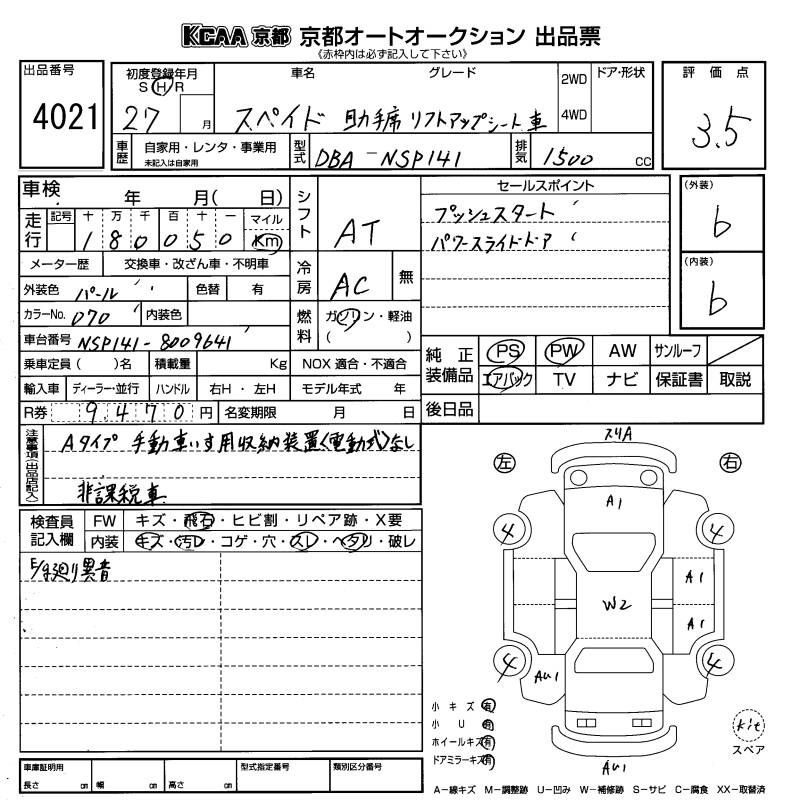 KCAA 京都 京都オートオークション 出品票
《赤枠内は必ず記入して下さい》
出品番号
4021
初度登録年月
S H R
27 月
車名 グレード
スペイド 助手席 リフトアップシート車
2WD
4WD
ドア・形状
評価点
3.5
車歴
自家用・レンタ・事業用
未記入は自家用
型式
DBA-NSP141
排気
1500 cc
車検 年 月( 日)
走行
記号 十 万 千 百 十 一 マイル
180050 Km
メーター歴 交換車・改ざん車・不明車
外装色 パール 色替 有
カラーNo. 070 内装色
車台番号 NSP141-8009641
乗車定員( )名 積載量 Kg
輸入車 ディーラー・並行 ハンドル 右H・左H
R券 9,470円 名変期限 月 日
シフト AT
冷房 AC 無
燃料 ガソリン・軽油
( )
NOX 適合・不適合
モデル年式 年
セールスポイント
プッシュスタート
パワースライドドア
(外装)
b
(内装)
b
純正装備品
PS PW AW サンルーフ
エアバック TV ナビ 保証書 取説
後日品
注意事項(出品店記入)
Aタイプ 手動車いす用収納装置(電動式)なし
非課税車
検査員記入欄
FW キズ・飛石・ヒビ割・リペア跡・X要
内装 キズ・汚レ・コゲ・穴・スレ・ヘタリ・破レ
E/g廻り異音
スリA
左 右
A1
4 4
A1
W2
A1
4 4
AU1
AU1
小キズ 有
小U 有
ホイールキズ 有
ドアミラーキズ 有
kit
スペア
車庫証明用
長さ cm 幅 cm 高さ cm
型式指定番号
類別区分番号
A−線キズ M−調整跡 U−凹み W−補修跡 S−サビ C−腐食 XX−取替済